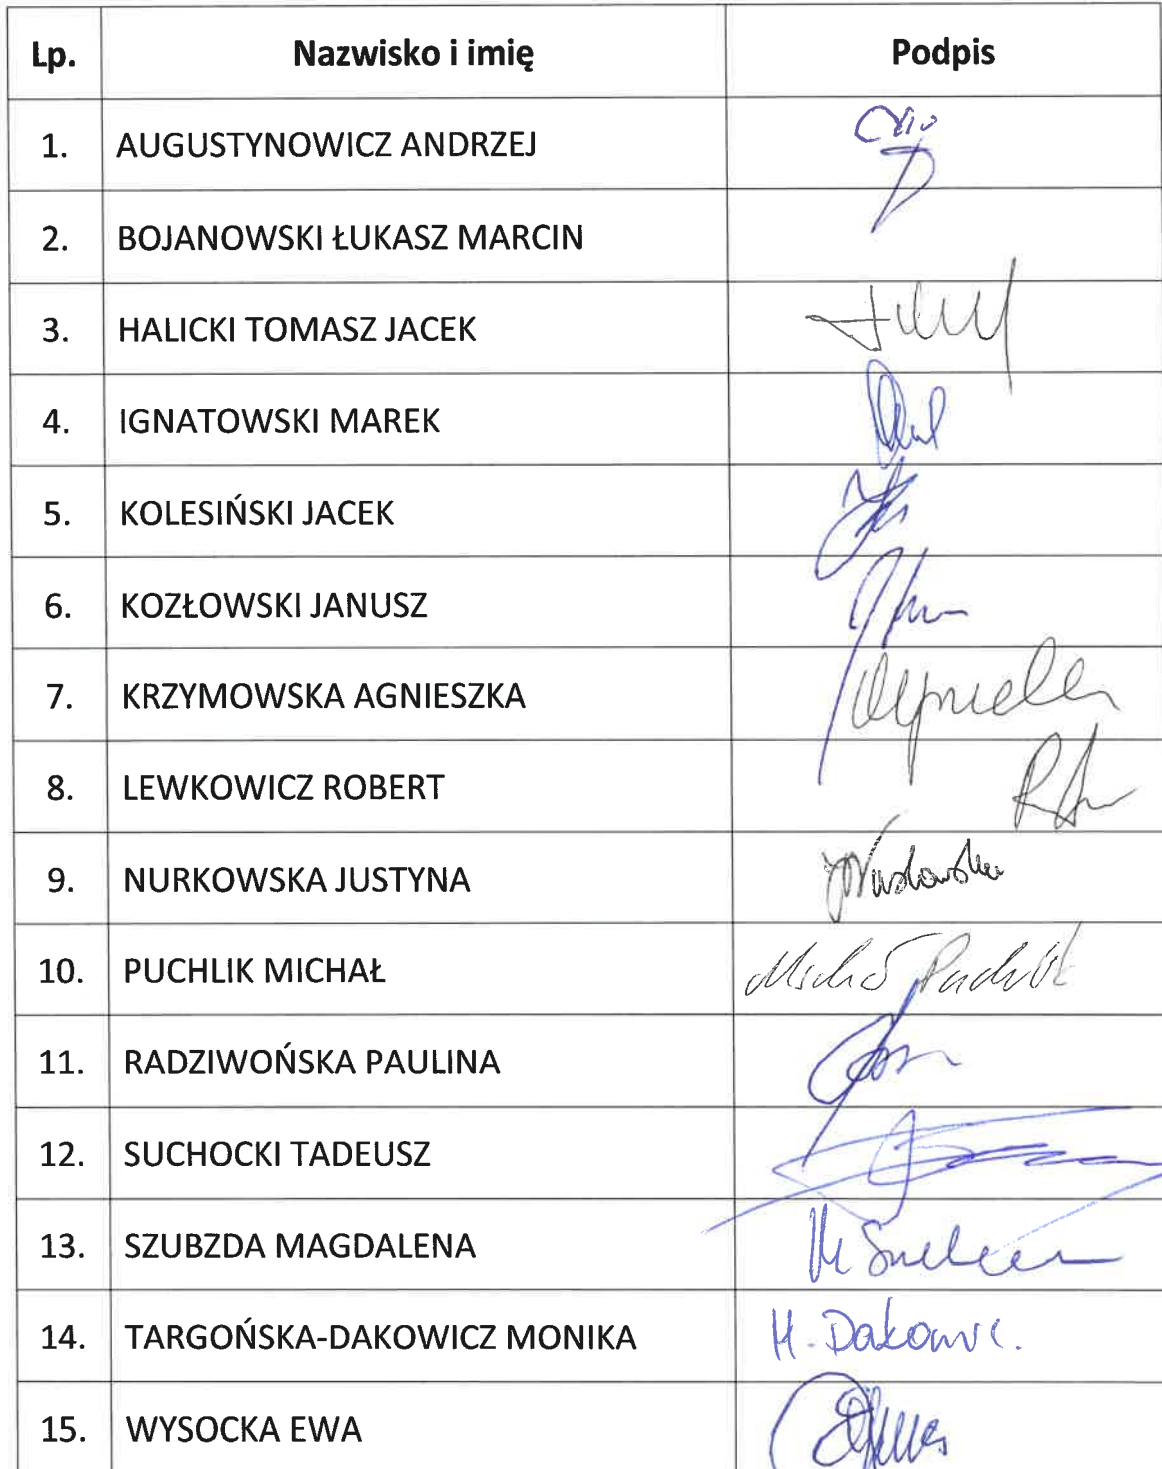 Lp. Nazwisko i imię Podpis
1. AUGUSTYNOWICZ ANDRZEJ
2. BOJANOWSKI ŁUKASZ MARCIN
3. HALICKI TOMASZ JACEK
4. IGNATOWSKI MAREK
5. KOLESIŃSKI JACEK
6. KOZŁOWSKI JANUSZ
7. KRZYMOWSKA AGNIESZKA
8. LEWKOWICZ ROBERT
9. NURKOWSKA JUSTYNA
10. PUCHLIK MICHAŁ Michał Puchlik
11. RADZIWOŃSKA PAULINA
12. SUCHOCKI TADEUSZ
13. SZUBZDA MAGDALENA
14. TARGOŃSKA-DAKOWICZ MONIKA
15. WYSOCKA EWA